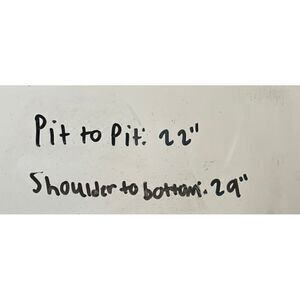 Pit to Pit: 22"
Shoulder to bottom: 29"